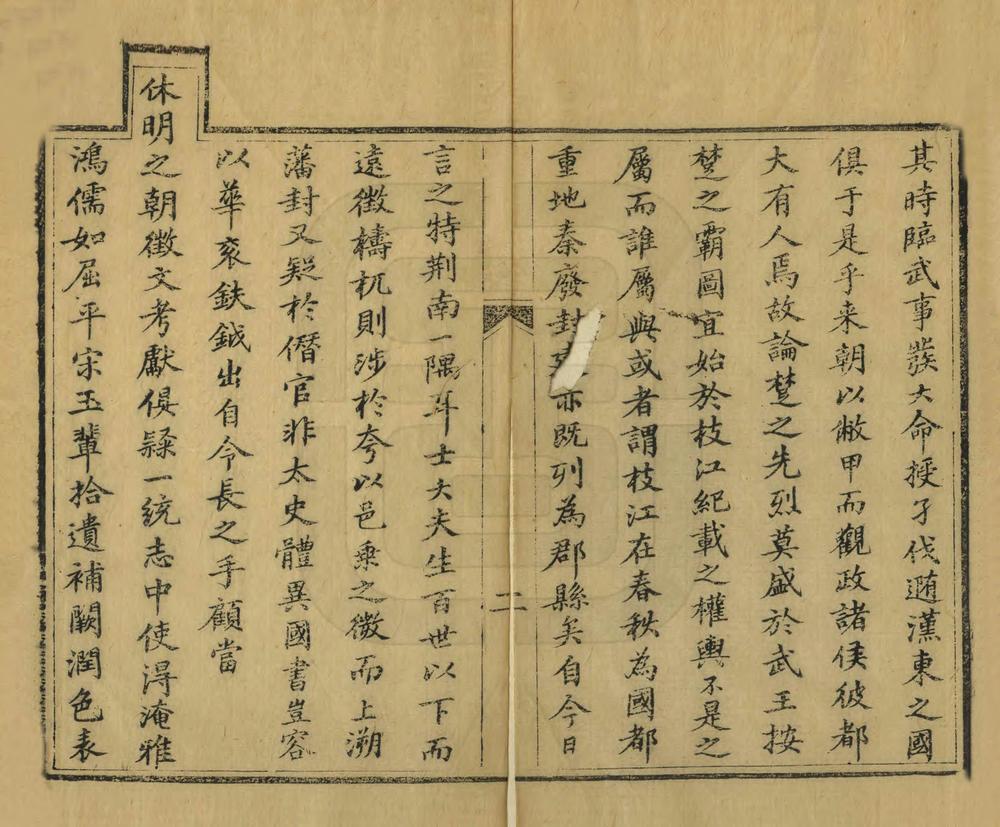 其時臨武事發大命授孑伐遒漢東之國
俱于是乎来朝以敝甲而觀政諸侯彼都
大有人焉故論楚之先烈莫盛於武王按
楚之霸圖宜始於枝江紀載之權輿不是之
屬而誰屬與或者謂枝江在春秩為國都
重地秦廢封建亦既列為郡縣矣自今日
二
言之特荆南一隅耳士大夫生百世以下而
遠徴檮杌則涉於夸以邑乗之微而上溯
藩封又疑於僭官非太史體異國書豈容
以華衮鈇鉞出自今長之手顧當
休明之朝徴文考獻俱𨽻一統志中使得淹雅
鴻儒如屈平宋玉輩拾遺補闕潤色表